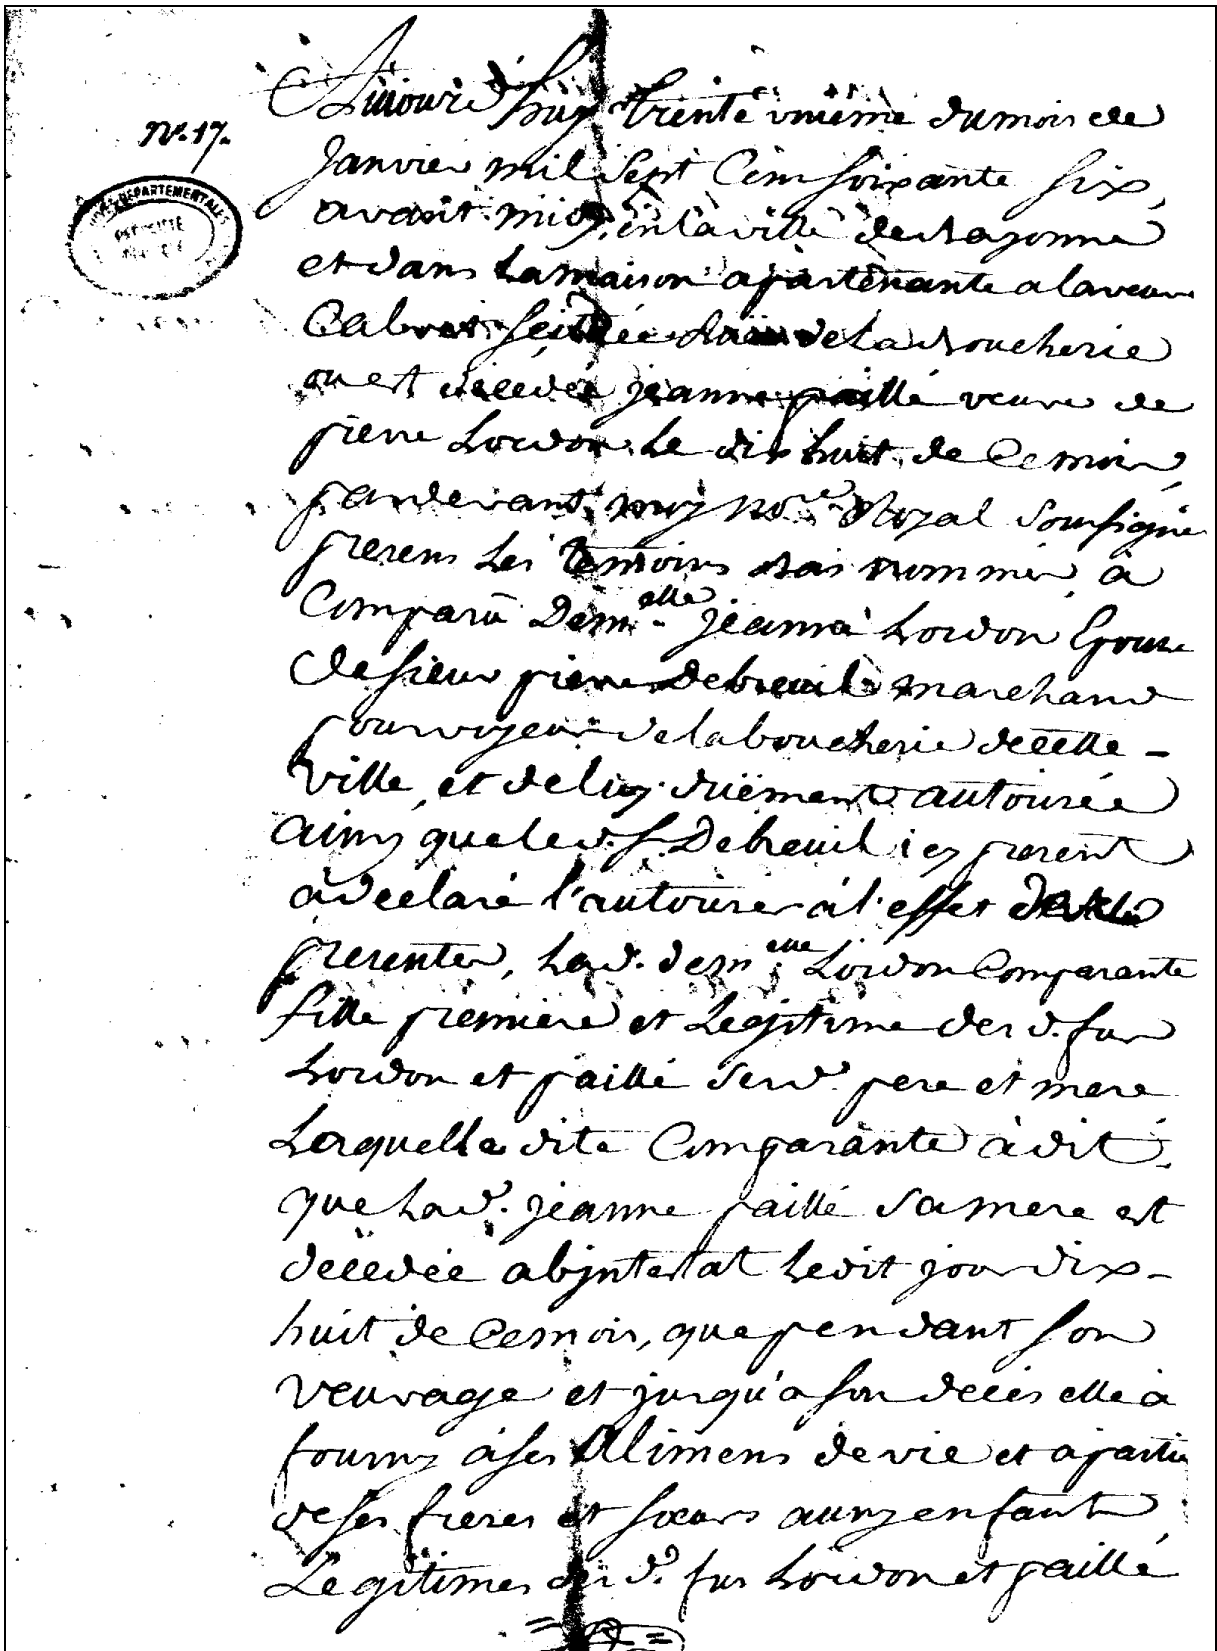 Aujourd'huy trente unième du mois de
N.° 17.
Janvier mil sept Cens soixante six,
ARCHIVES DEPARTEMENTALES
avant midy, en la ville de Bayonne
et dans la maison apartenante a la veuve
Calvet scituée Ruë de la Boucherie
ou est decedée jeanne paillé veuve de
pierre Lordon le dix huit de Ce mois,
pardevant moy no.re Royal soussigné
presens les temoins bas nommés, à
Comparu Dem.elle jeanne Lordon Epouse
de sieur pierre Debreuil marchand
pourvoyeur de la boucherie de cette -
ville, et de luy düement autorisée
ainsy que led. s. Debreuil icy present
à declaré l'autoriser à l'effet des
presentes, lad. dem.elle Lordon Comparante
fille première et Legitime desd. feus
Lordon et paillé sesd. pere et mere
Lesquelle dite Comparante à dit
que lad. jeanne paillé sa mere est
decedée abjntestat ledit jour dix-
huit de Ce mois, que pendant son
veuvage et jusqu'a son decés elle à
fourny à ses Alimens de vie et apartie
de ses freres et sœurs aussy enfants
Legitimes desd. feus Lordon et paillé